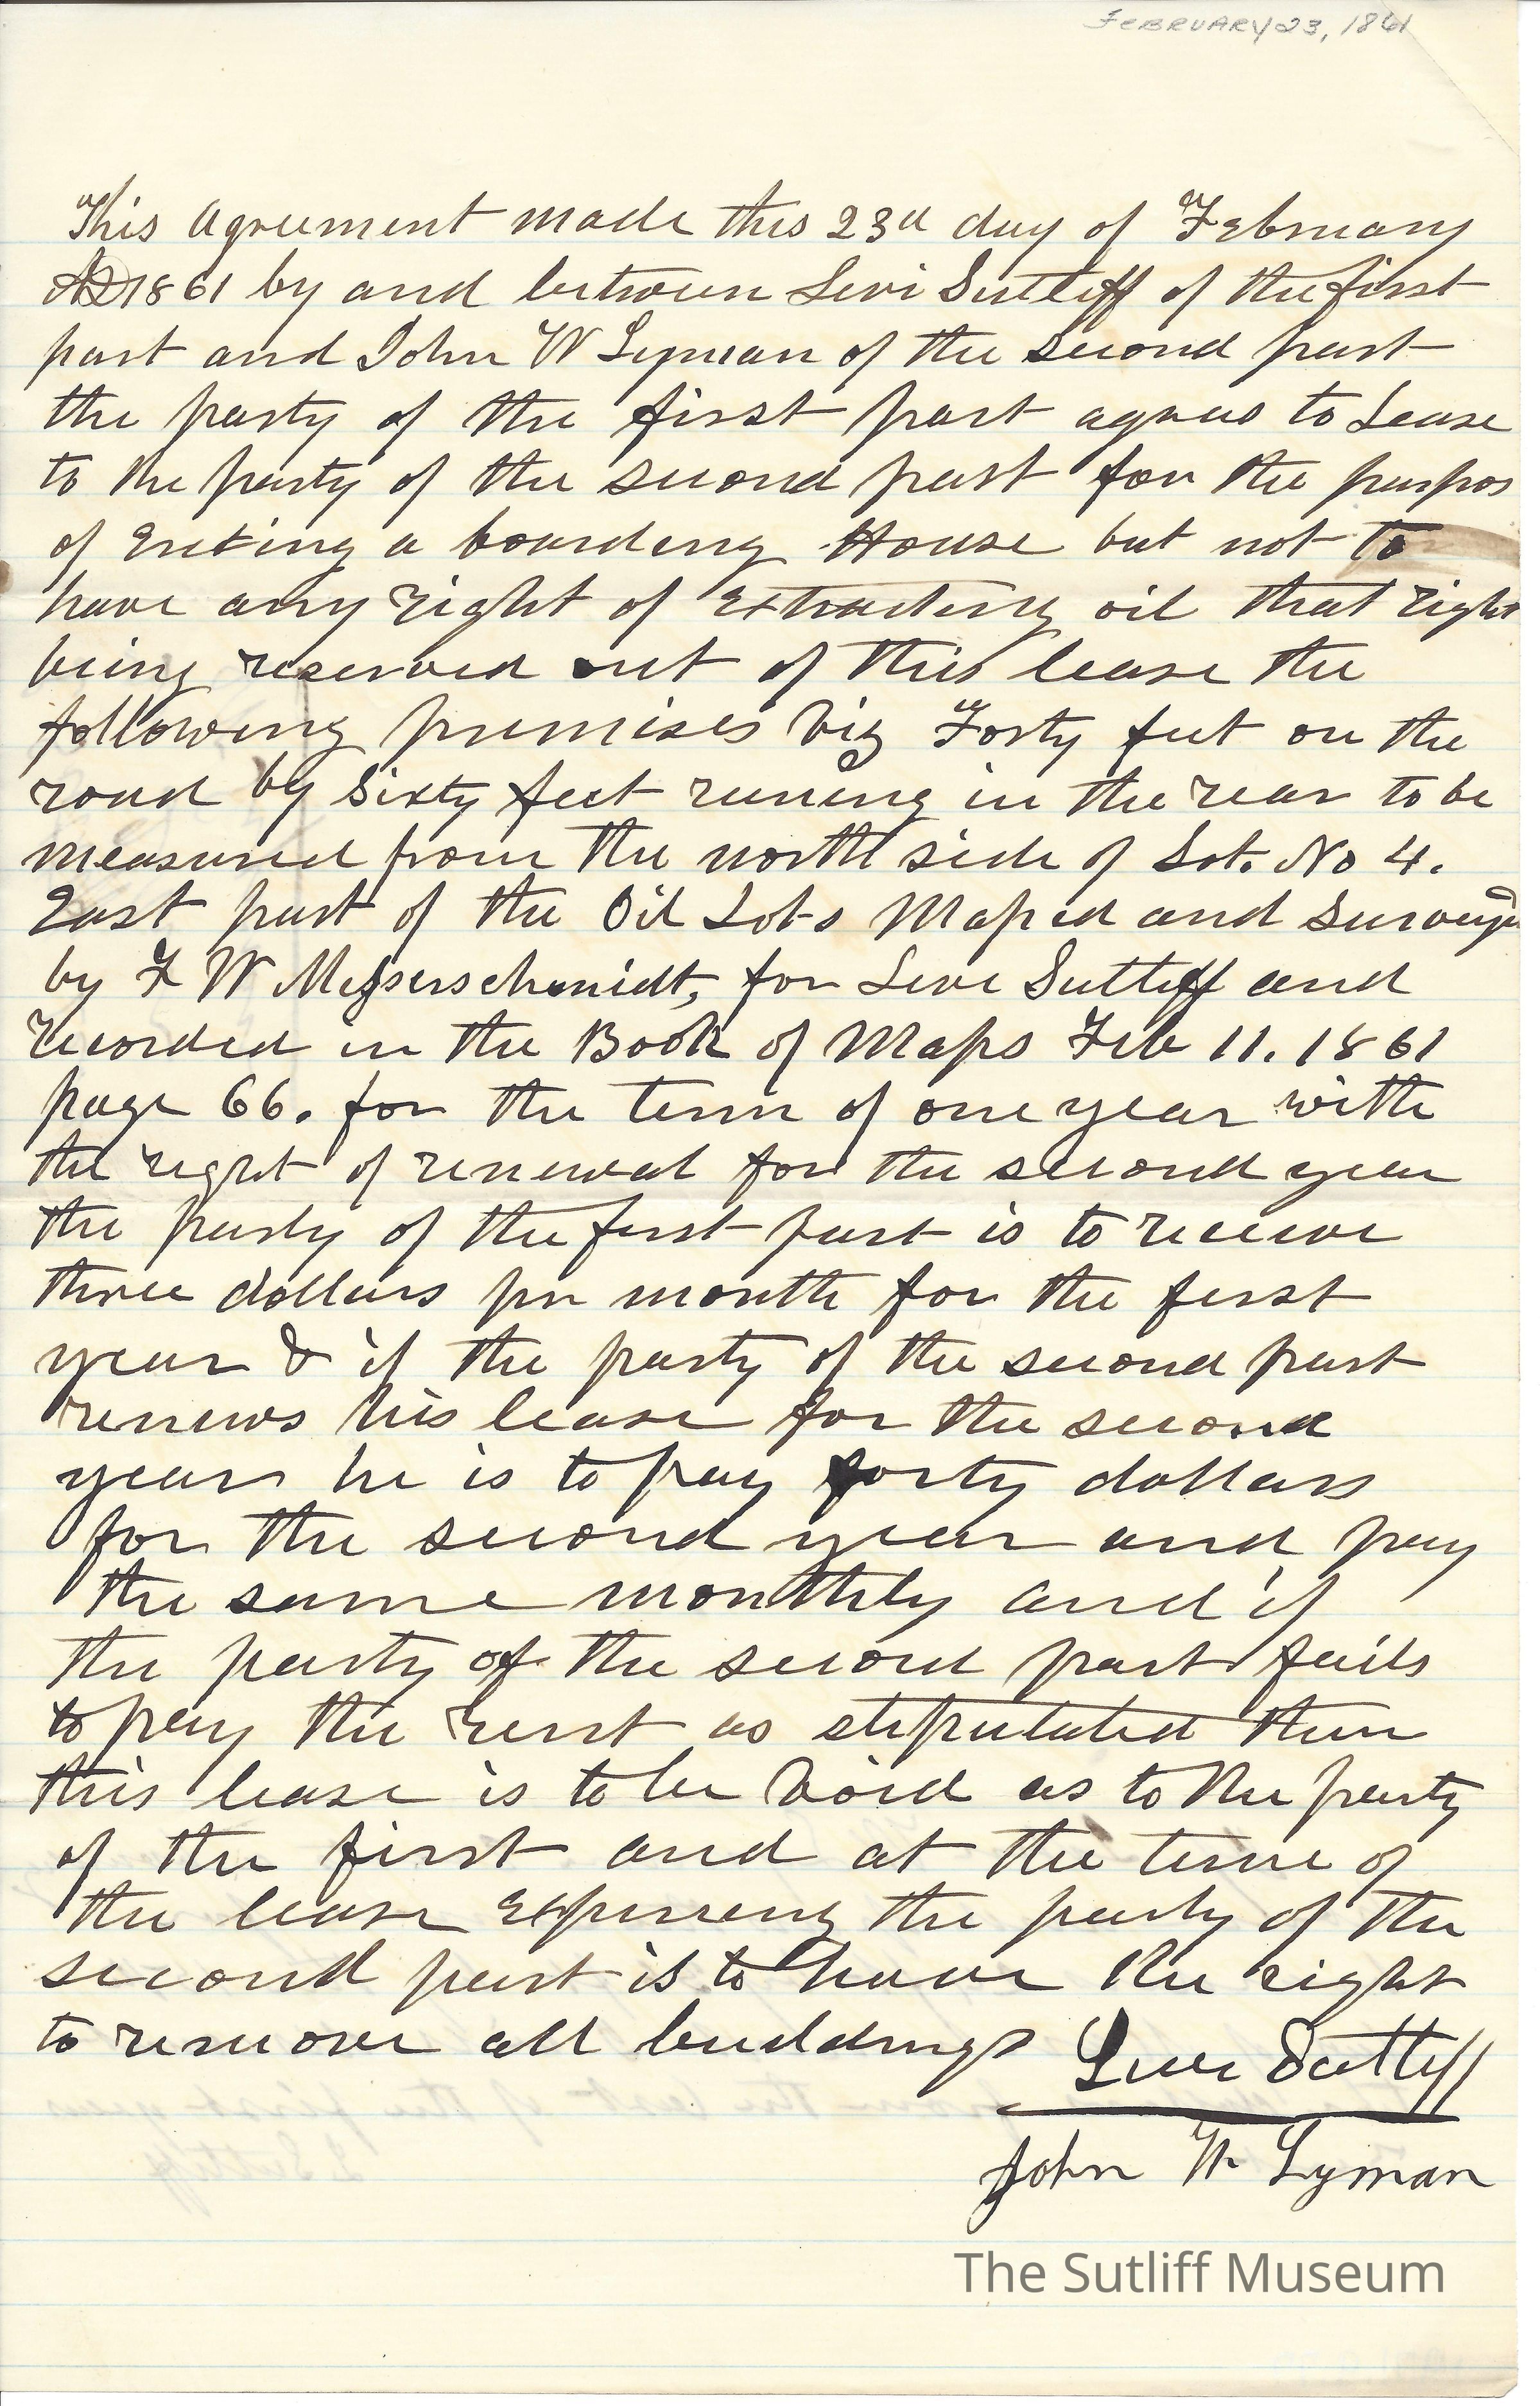 FEBRUARY 23, 1861
This Agreement made this 23d day of February
AD 1861 by and between Levi Sutliff of the first
part and John W Lyman of the second part
the party of the first part agrees to Lease
to the party of the second part for the purpos
of Erecting a boarding House but not to
have any right of Extracting oil that right
being reserved out of this lease the
following premises viz Forty feet on the
road by Sixty feet runing in the rear to be
measured from the north side of Lot. No 4.
East part of the Oil Lots Maped and Surveyed
by F W Messerschmidt, for Levi Sutliff and
recorded in the Book of Maps Feb 11. 1861
page 66. for the term of one year with
the right of renewal for the second year
the party of the first part is to receive
three dollars pr month for the first
year & if the party of the second part
renews his lease for the second
year he is to pay forty dollars
for the second year and pay
the same monthly and if
the party of the second part fails
to pay the rent as stipulated then
this lease is to be void as to the party
of the first and at the time of
the lease expireing the party of the
second part is to have the right
to remove all buildings
Levi Sutliff
John W. Lyman
The Sutliff Museum